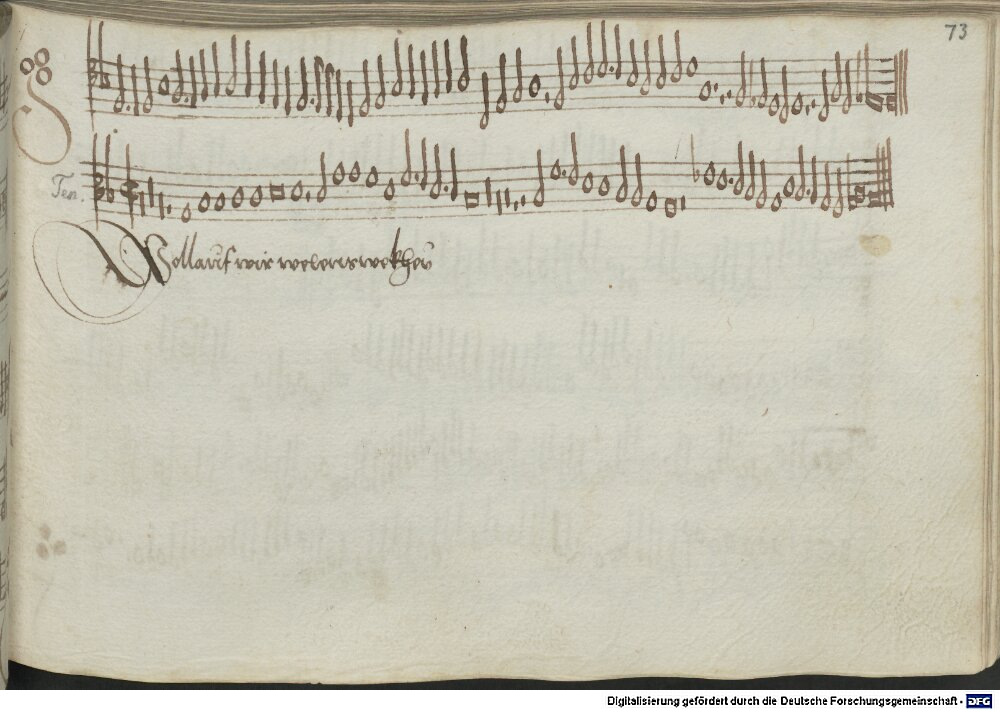 73
Ten.
Wollauf wir welens wekhen
Digitalisierung gefördert durch die Deutsche Forschungsgemeinschaft - DFG